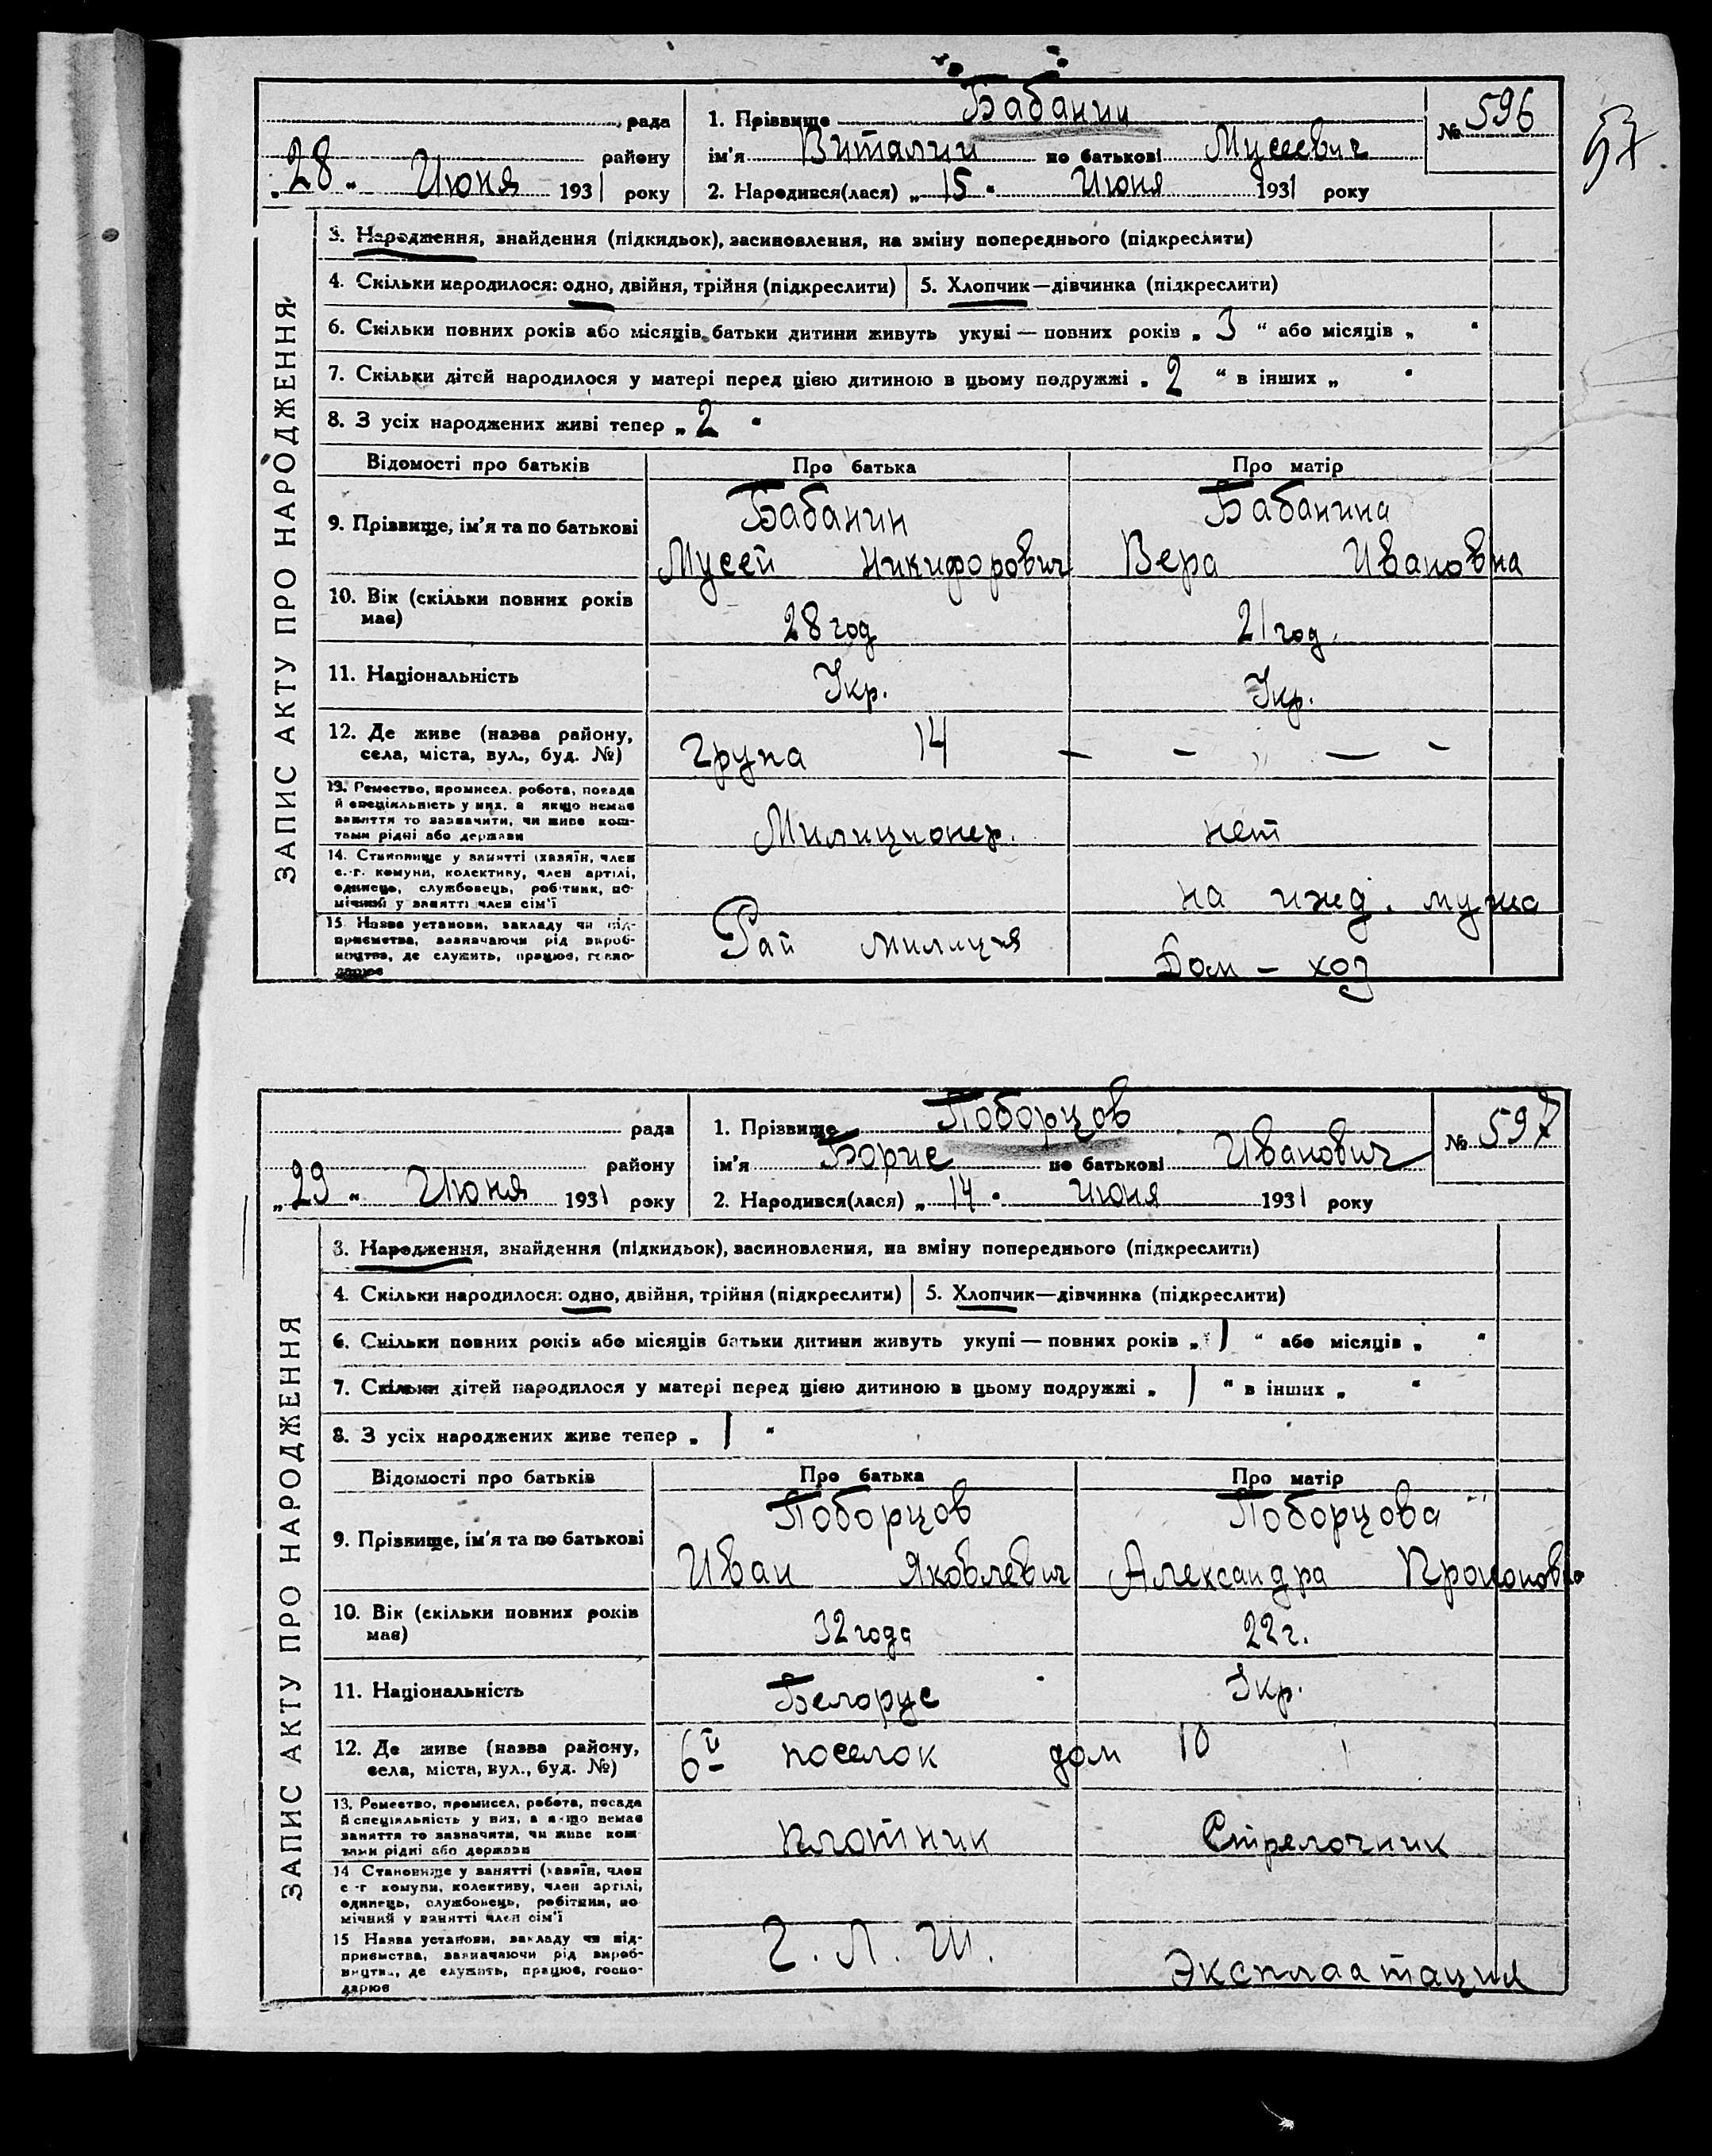 57
рада 1. Прізвище Бабанин № 596
району ім'я Виталии по батькові Мусеевич
„28" Июня 1931 року 2. Народився(лася) „15" Июня 1931 року
ЗАПИС АКТУ ПРО НАРОДЖЕННЯ
3. Народження, знайдення (підкидьок), засиновлення, на зміну попереднього (підкреслити)
4. Скільки народилося: одно, двійня, трійня (підкреслити) 5. Хлопчик—дівчинка (підкреслити)
6. Скільки повних років або місяців батьки дитини живуть укупі — повних років „3" або місяців „ "
7. Скільки дітей народилося у матері перед цією дитиною в цьому подружжі „2" в інших „ "
8. З усіх народжених живі тепер „2"
Відомості про батьків Про батька Про матір
Бабанин Бабанина
9. Прізвище, ім'я та по батькові
Мусей Никифорович Вера Ивановна
10. Вік (скільки повних років
має) 28 год 21 год.
11. Національність Укр. Укр.
12. Де живе (назва району,
села, міста, вул., буд. №) Група 14 — - „ — -
13. Ремество, промисел, робота, посада
й спеціяльність у них, а якщо немає
заняття то зазначити, чи живе кош-
тами рідні або держави Милиционер. нет
14. Становище у занятті (хазяїн, член
с.-г. комуни, колективу, член артілі,
одинець, службовець, робітник, по-
мічний у занятті член сім'ї на ижд. мужа
15. Назва установи, закладу чи під-
приємства, зазначаючи рід вироб-
ництва, де служить, працює, госпо-
дарює Рай милиция Дом - хоз
рада 1. Прізвище Поборцов № 597
району ім'я Борис по батькові Иванович
„29" Июня 1931 року 2. Народився(лася) „14" Июня 1931 року
ЗАПИС АКТУ ПРО НАРОДЖЕННЯ
3. Народження, знайдення (підкидьок), засиновлення, на зміну попереднього (підкреслити)
4. Скільки народилося: одно, двійня, трійня (підкреслити) 5. Хлопчик—дівчинка (підкреслити)
6. Скільки повних років або місяців батьки дитини живуть укупі — повних років „1" або місяців „ "
7. Скільки дітей народилося у матері перед цією дитиною в цьому подружжі „1" в інших „ "
8. З усіх народжених живе тепер „1"
Відомості про батьків Про батька Про матір
Поборцов Поборцова
9. Прізвище, ім'я та по батькові
Иван Яковлевич Александра
10. Вік (скільки повних років
має) 32 года 22 г.
11. Національність Белорус Укр.
12. Де живе (назва району,
села, міста, вул., буд. №) 6й поселок дом 10
13. Ремество, промисел, робота, посада
й спеціяльність у них, а якщо немає
заняття то зазначити, чи живе кош-
тами рідні або держави плотник Стрелочник
14 Становище у занятті (хазяїн, член
с.-г комуни, колективу, член артілі,
одинець, службовець, робітник, по-
мічний у занятті член сім'ї
15 Назва установи, закладу чи під-
приємства, зазначаючи рід вироб-
ництва, де служить, працює, госпо-
дарює Ч. Л. Ш. Эксплаатация